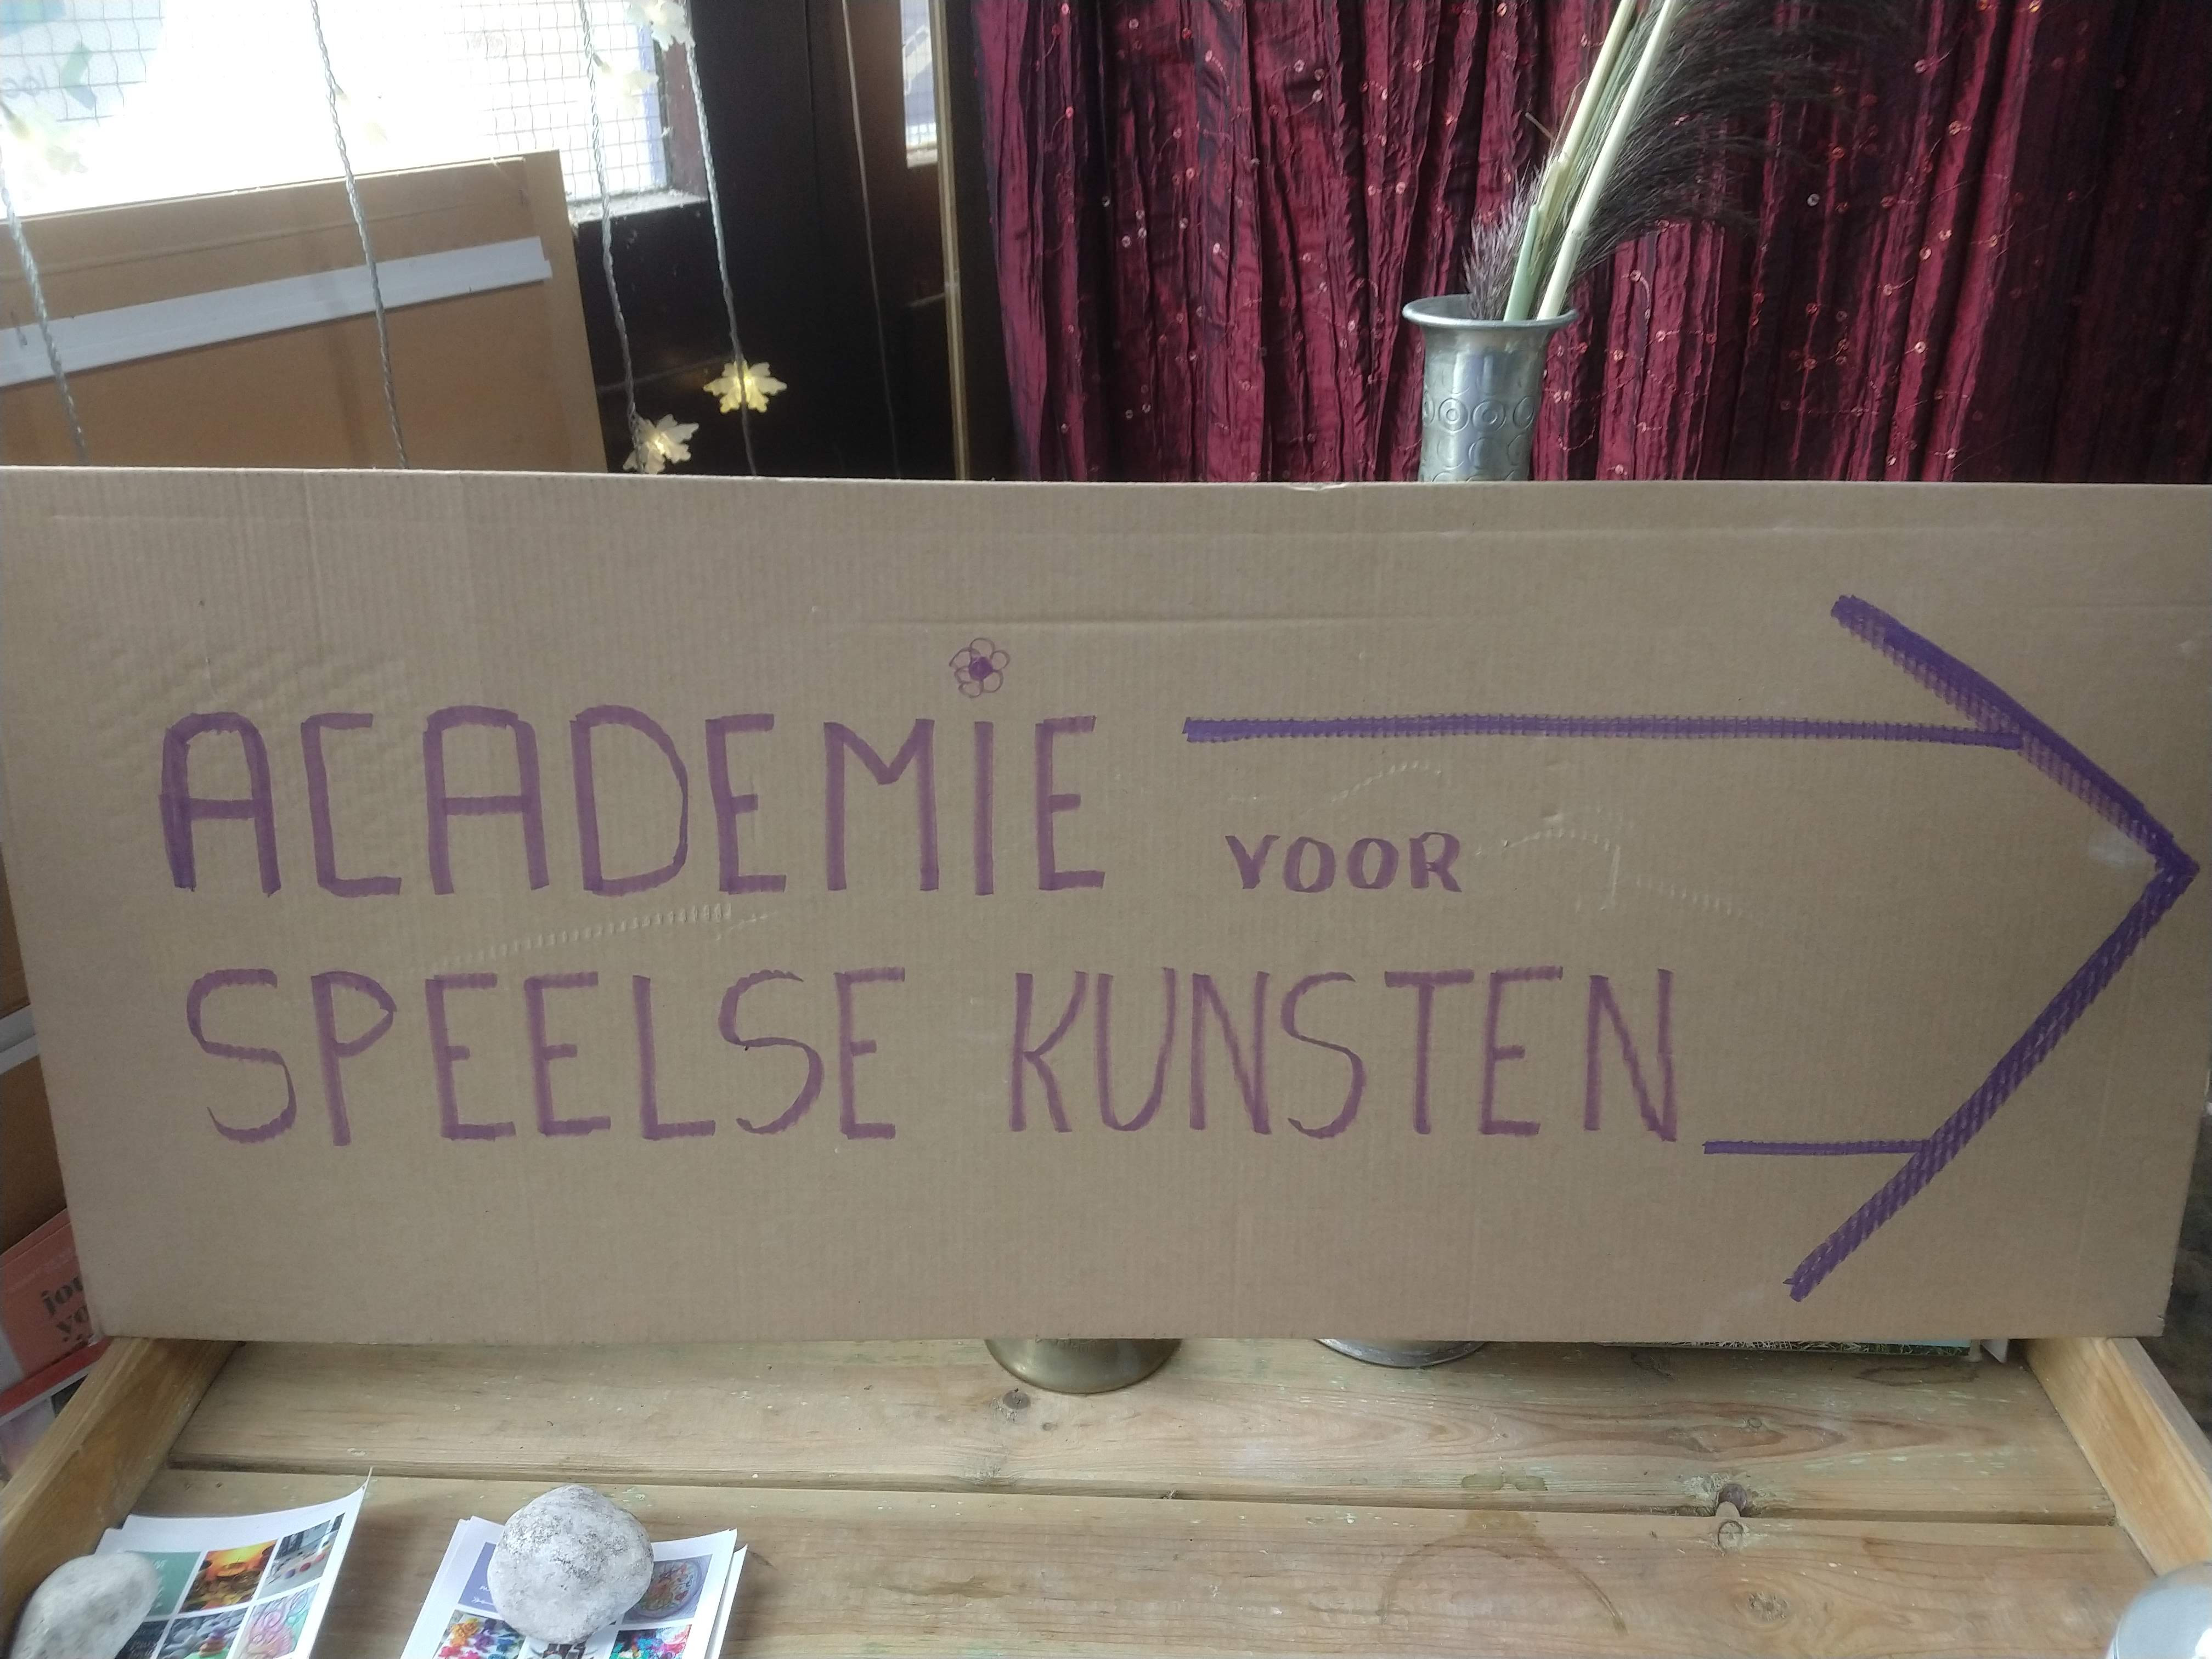 ACADEMIE
VOOR
SPEELSE KUNSTEN